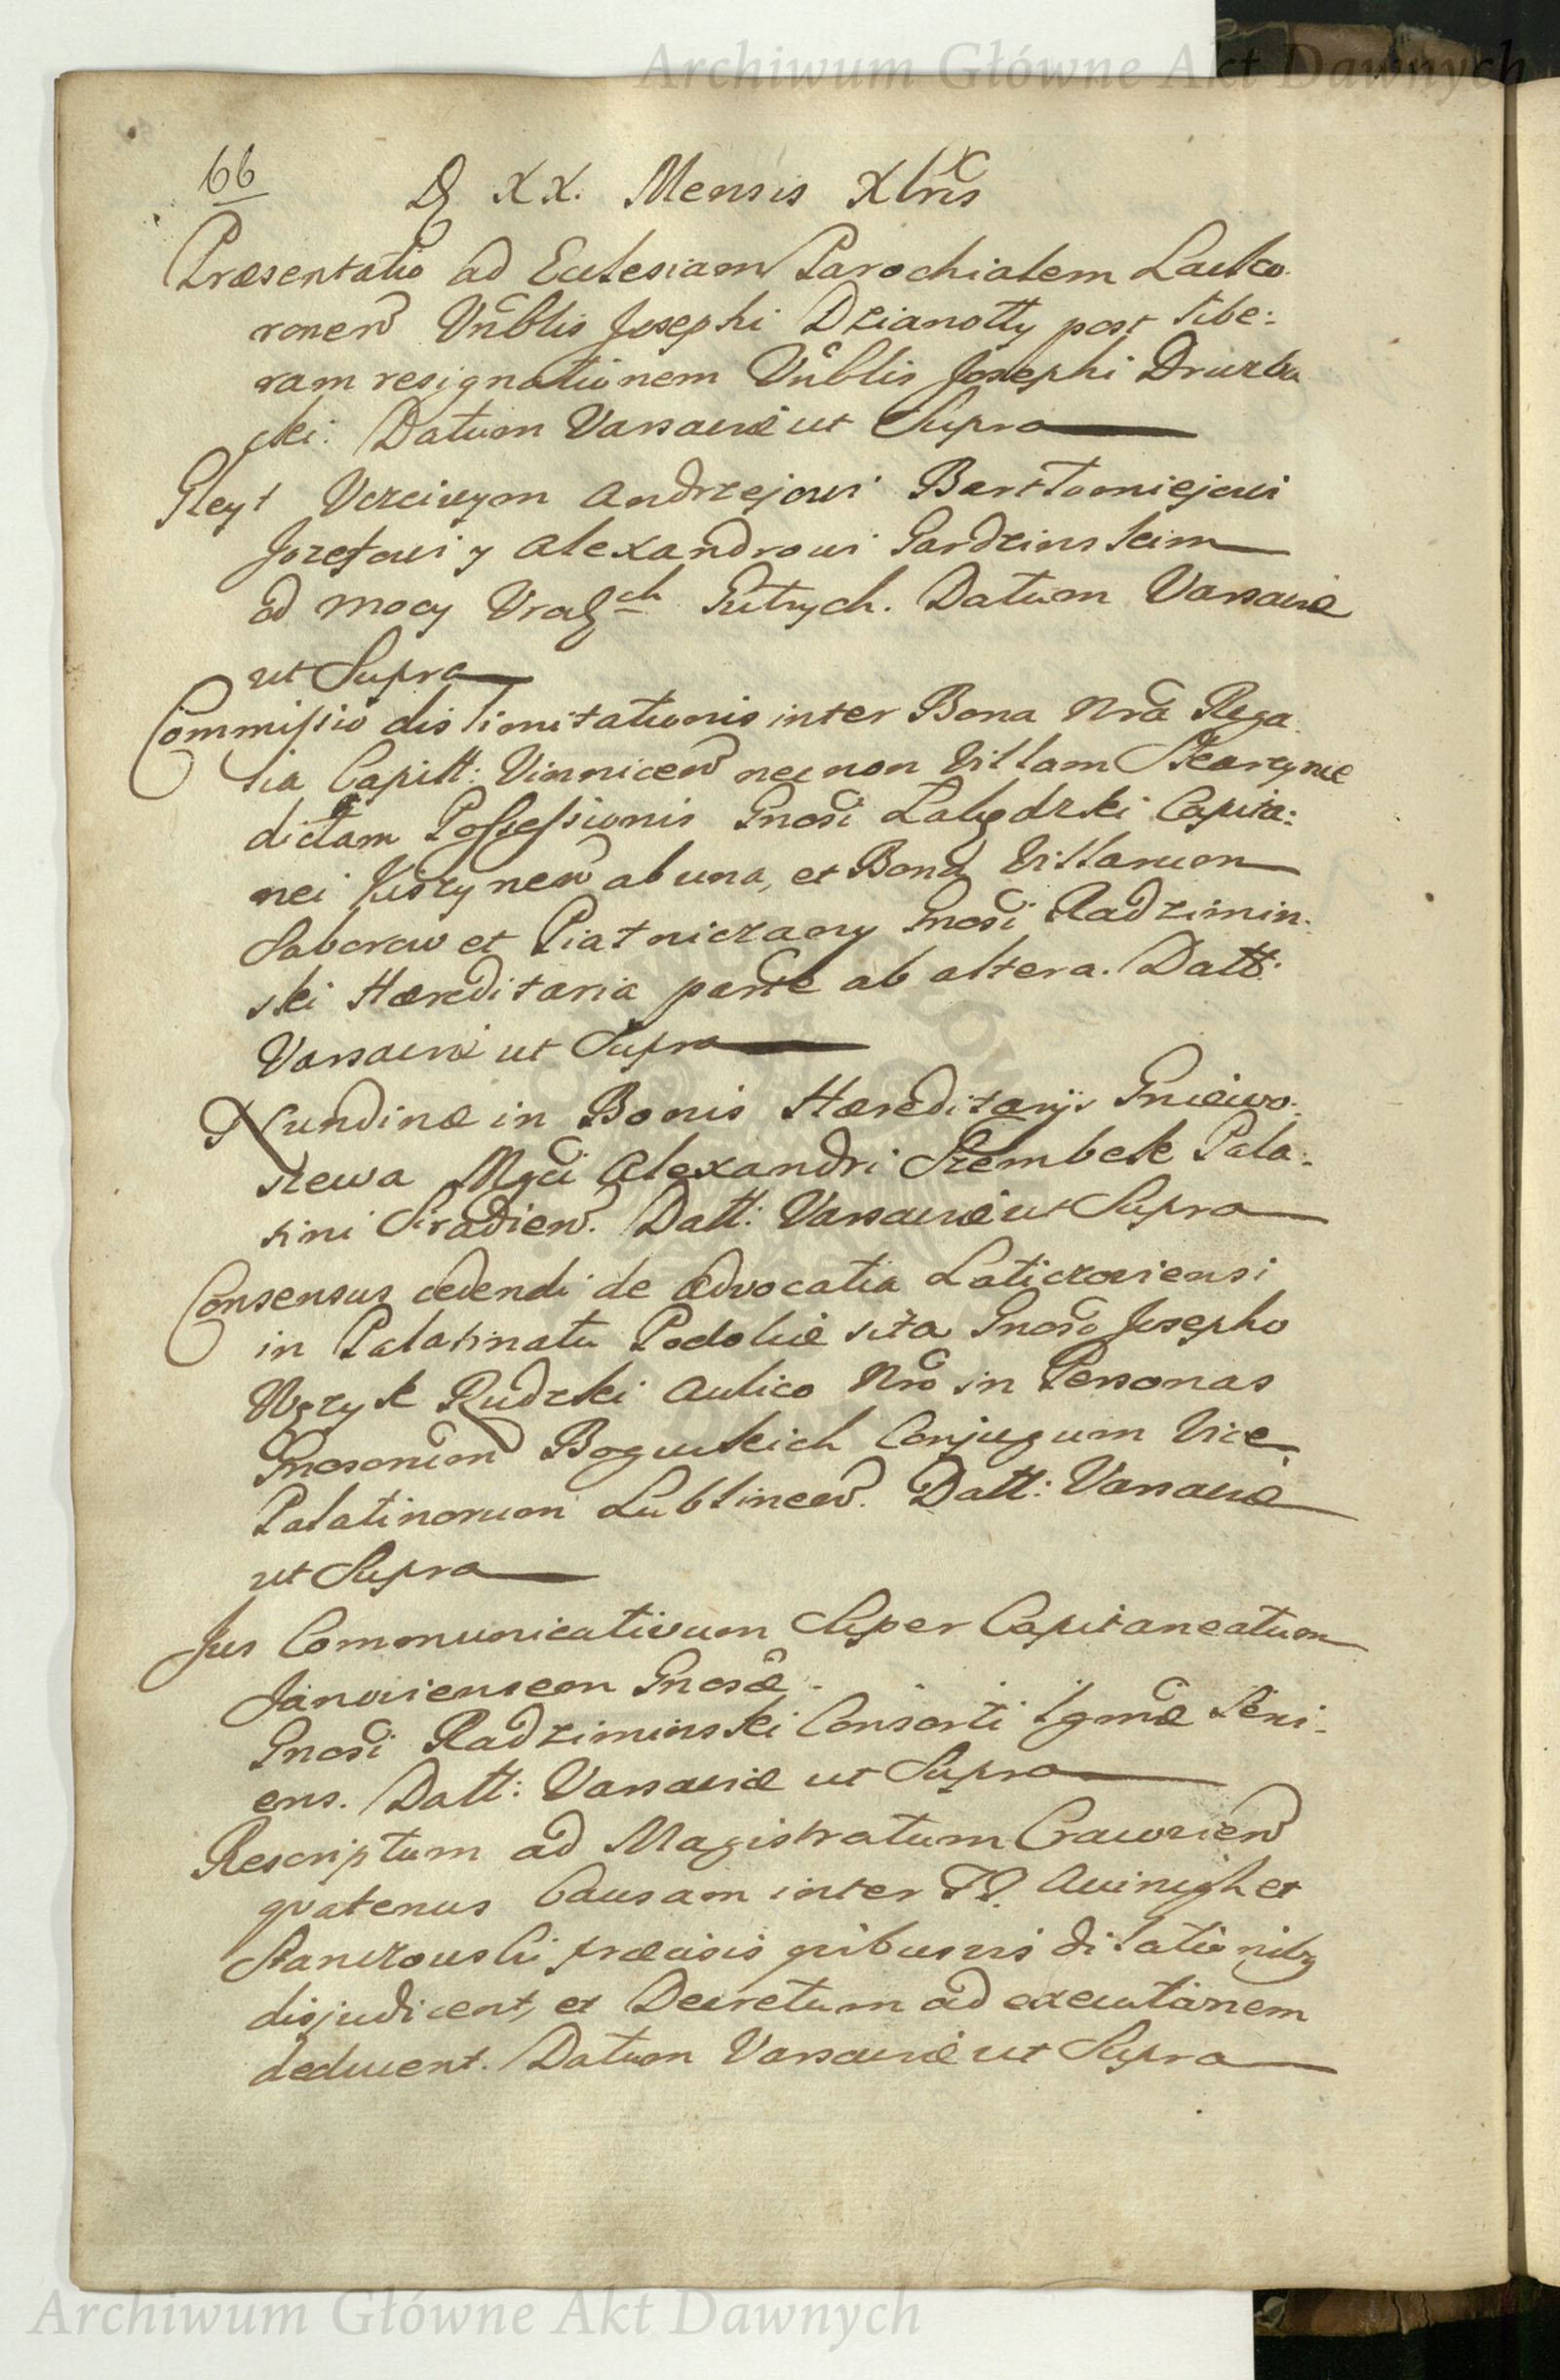 Archiwum Główne Akt Dawnych
66
D. XX. Mensis Xbris
Præsentatio ad Ecclesiam Parochialem Lacko
ronen Vnblis Josephi Dzianotty post libe:
ram resignationem Vnblis Josephi Druzba
cki. Datum Varsaviæ ut Supra
Gleyt Vczciwym Andrzejowi Barttomiejowi
Jozefowi y Alexandrowi Gardzinskim
ad mocy Vrodz ch Gutrych. Datum Varsaviæ
ut Supra
Commissio dislimitationis inter Bona Nra Rega
lia Capitt: Vinnicen necnon Villam
dictam Possessionis Gnosi Łabędzki Capita:
nei ab una, et Bona Villarum
Saborow et Piatniczany Gnosi Radzimin:
ski Hæreditaria parte ab altera. Datt:
Varsaviæ ut Supra
Nundinæ in Bonis Hæreditarijs Gniewo:
szewa Mgci Alexandri Szembek Pala:
tini Siradien. Datt: Varsaviæ ut Supra
Consensus cedendi de Advocatia Laticzoviensi
in Palatinatu Podoliæ sita Gnoso Josepho
Węzyk Rudzki Aulico Nro in Personas
Gnosorum Boguckich Conjugum Vice
Palatinorum Lublinen. Datt: Varsaviæ
ut Supra
Jus Communicativum Super Capitaneatum
Janoviensem Gnosæ
Gnosi Radziminski Consorti Sgmæ Seni:
ens. Datt: Varsaviæ ut Supra
Rescriptum ad Magistratum
quatenus Causam inter et
præcisis quibusvis dilationibus
disjudicent, et Decretum ad executionem
deducent. Datum Varsaviæ ut Supra
Archiwum Główne Akt Dawnych